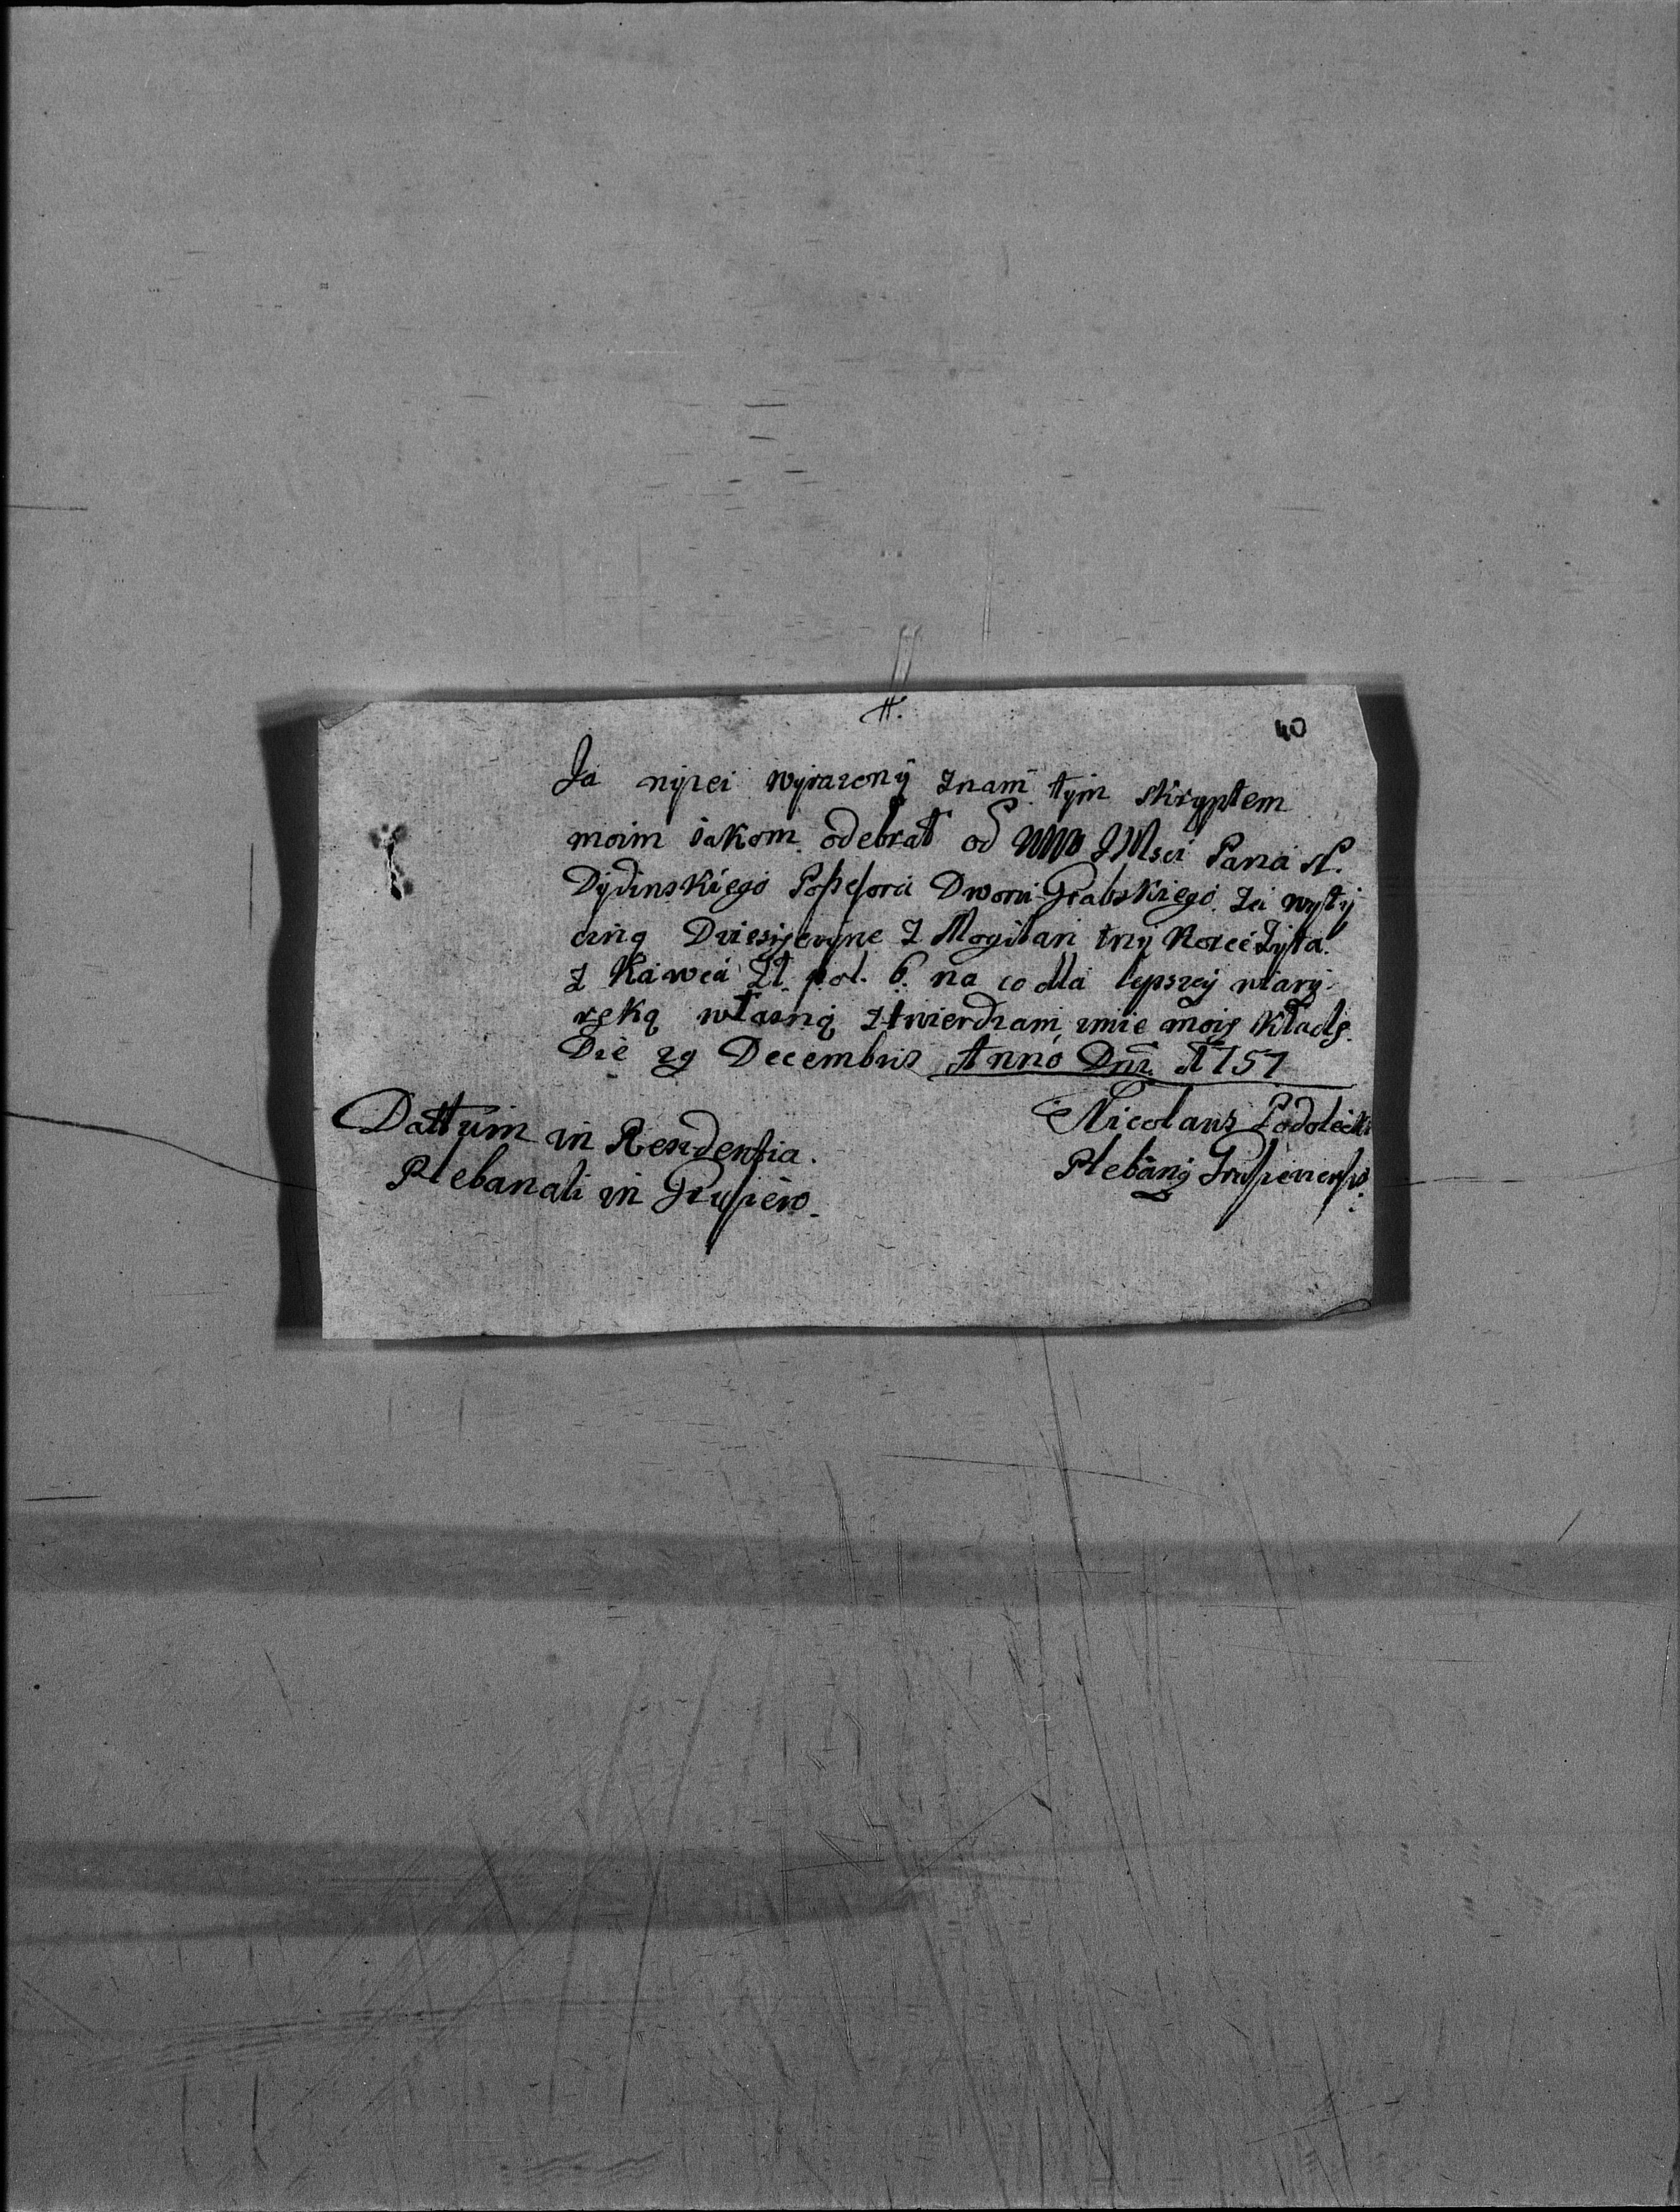 #.
40
Ja nyzei wyrazony znam tym skryptem
moim iakom odebrał od JMsci Pana N.
Dydinskiego Possessora Dworu Grabskiego za wyty
czną Dziesięcine z Mogilan trzy Korce Zyta
z Kawca Zł. pol. 6. na co dla lepszey wiary
ręką własną ztwierdzam imie moię kładę.
Die 29 Decembris Anno Dni 1757
Dattum in Rezydensia.
Plebanali in
Nicolaus Podolecki
Plebang